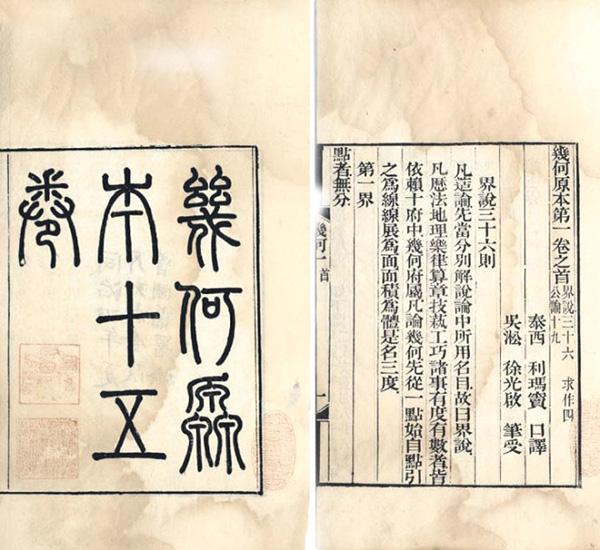 幾何原
本十五
卷
幾何原本第一卷之首 界說三十六 求作四
公論十九
泰西 利瑪竇 口譯
吳淞 徐光啟 筆受
界說三十六則
凡造論先當分別解說論中所用名目故曰界說
凡厯法地理樂律算章技藝工巧諸事有度有數者皆
依賴十府中幾何府屬凡論幾何先從一點始自點引
之為線線展為面面積為體是名三度
第一界
點者無分
幾何一 首 一